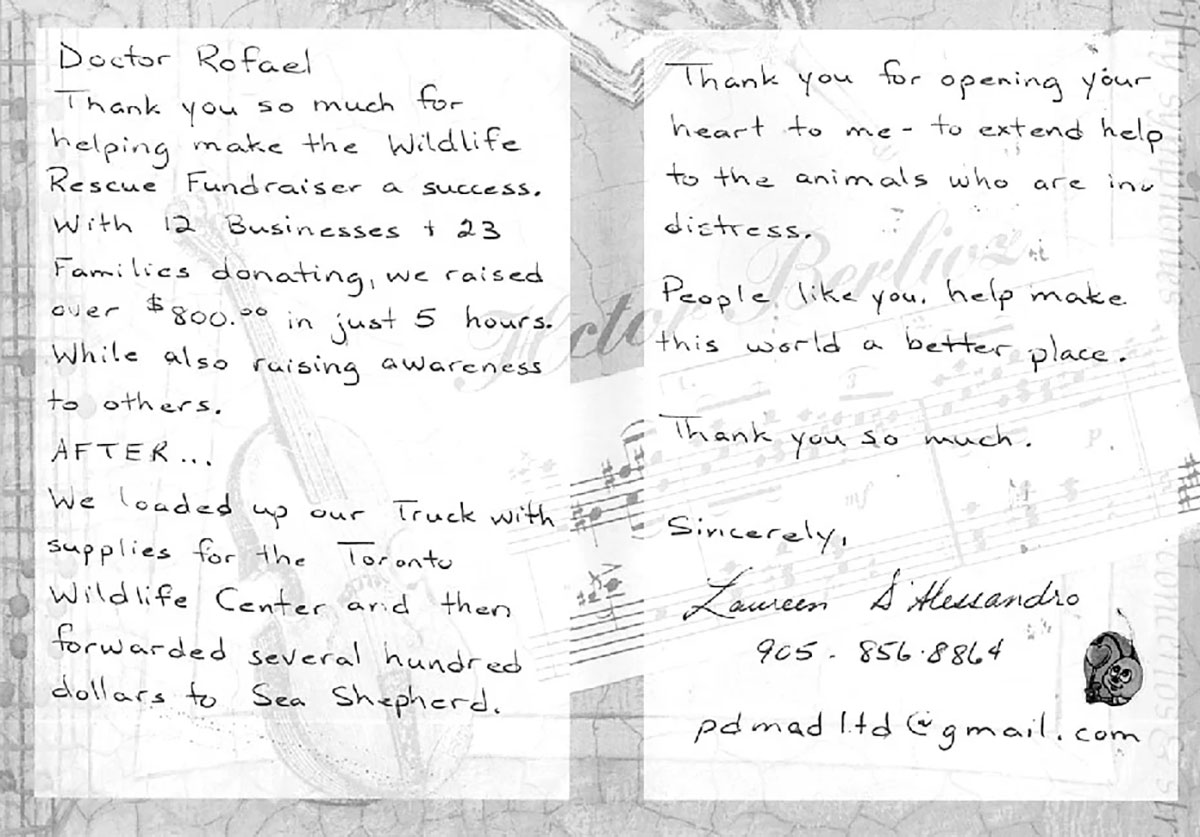 Doctor Rofael
Thank you so much for
helping make the Wildlife
Rescue Fundraiser a success.
With 12 Businesses + 23
Families donating, we raised
over $800.00 in just 5 hours.
While also raising awareness
to others.
AFTER...
We loaded up our Truck with
supplies for the Toronto
Wildlife Center and then
forwarded several hundred
dollars to Sea Shepherd.
Thank you for opening your
heart to me - to extend help
to the animals who are in
distress.
People like you. help make
this world a better place.
Thank you so much.
Sincerely,
Laureen D'Alessandro
905 - 856-8864
pdmadltd@gmail.com
Hector Berlioz
mf
p.
symphonies
concertos &